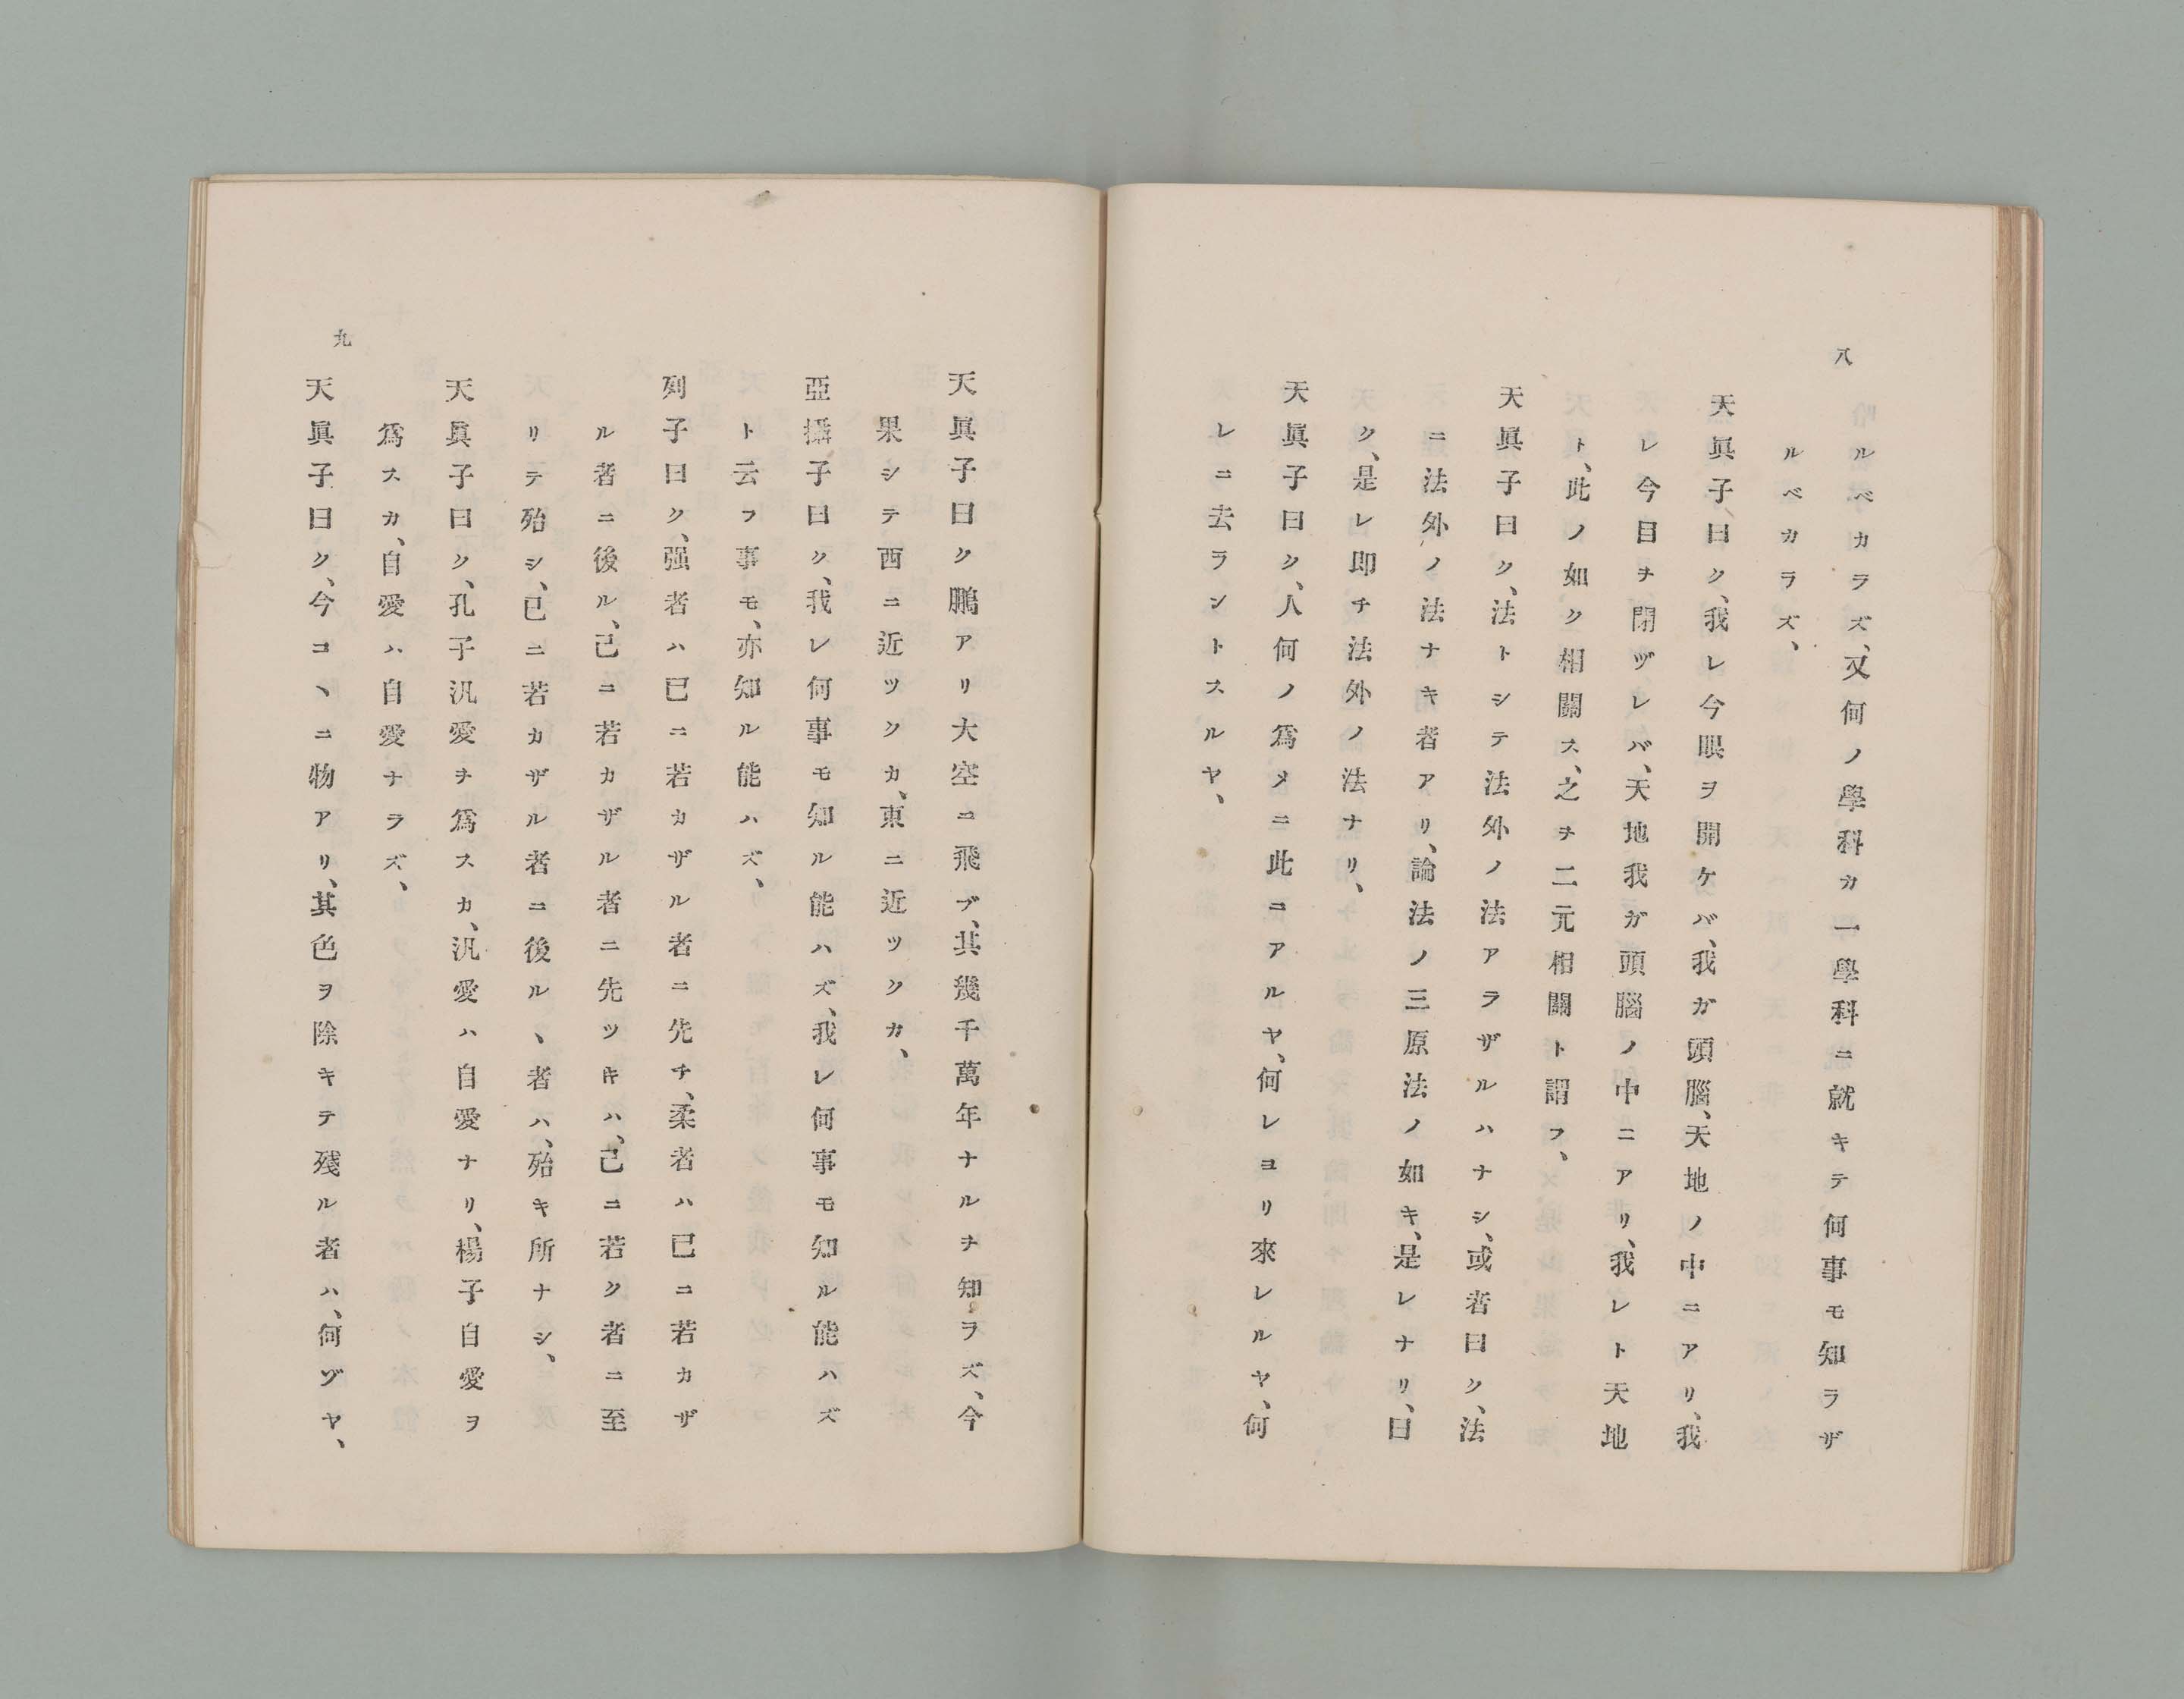 八
ルベカラズ、又何ノ學科カ一學科ニ就キテ何事モ知ラザ
ルベカラズ、
天眞子曰ク、我レ今眼ヲ開ケバ、我ガ頭腦、天地ノ中ニアリ、我
レ今目ヲ閉ヅレバ、天地我ガ頭腦ノ中ニアリ、我レト天地
ト、此ノ如ク相關ス、之ヲ二元相關ト謂フ、
天眞子曰ク、法トシテ法外ノ法アラザルハナシ、或者曰ク、法
ニ法外ノ法ナキ者アリ、論法ノ三原法ノ如キ、是レナリ、曰
ク、是レ即チ法外ノ法ナリ、
天眞子曰ク、人何ノ爲メニ此ニアルヤ、何レヨリ來レルヤ、何
レニ去ラントスルヤ、
天眞子曰ク鵬アリ大空ニ飛ブ、其幾千萬年ナルヲ知ラズ、今
果シテ西ニ近ツクカ、東ニ近ツクカ、
亞攝子曰ク、我レ何事モ知ル能ハズ、我レ何事モ知ル能ハズ
ト云フ事モ、亦知ル能ハズ、
列子曰ク、强者ハ已ニ若カザル者ニ先チ、柔者ハ已ニ若カザ
ル者ニ後ル、己ニ若カザル者ニ先ツキハ、己ニ若ク者ニ至
リテ殆シ、已ニ若カザル者ニ後ルヽ者ハ、殆キ所ナシ、
天眞子曰ク、孔子汎愛ヲ爲スカ、汎愛ハ自愛ナリ、楊子自愛ヲ
爲スカ、自愛ハ自愛ナラズ、
九
天眞子曰ク、今コヽニ物アリ、其色ヲ除キテ殘ル者ハ、何ゾヤ、